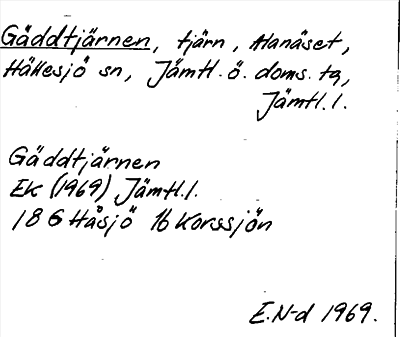 Gäddtjärnen, tjärn, Alanäset,
Hällesjö sn, Jämtl. ö. doms. tg,
Jämtl. l.
Gäddtjärnen
EK (1969) Jämtl. l.
18G Håsjö 1b Korssjön
E.N-d 1969.